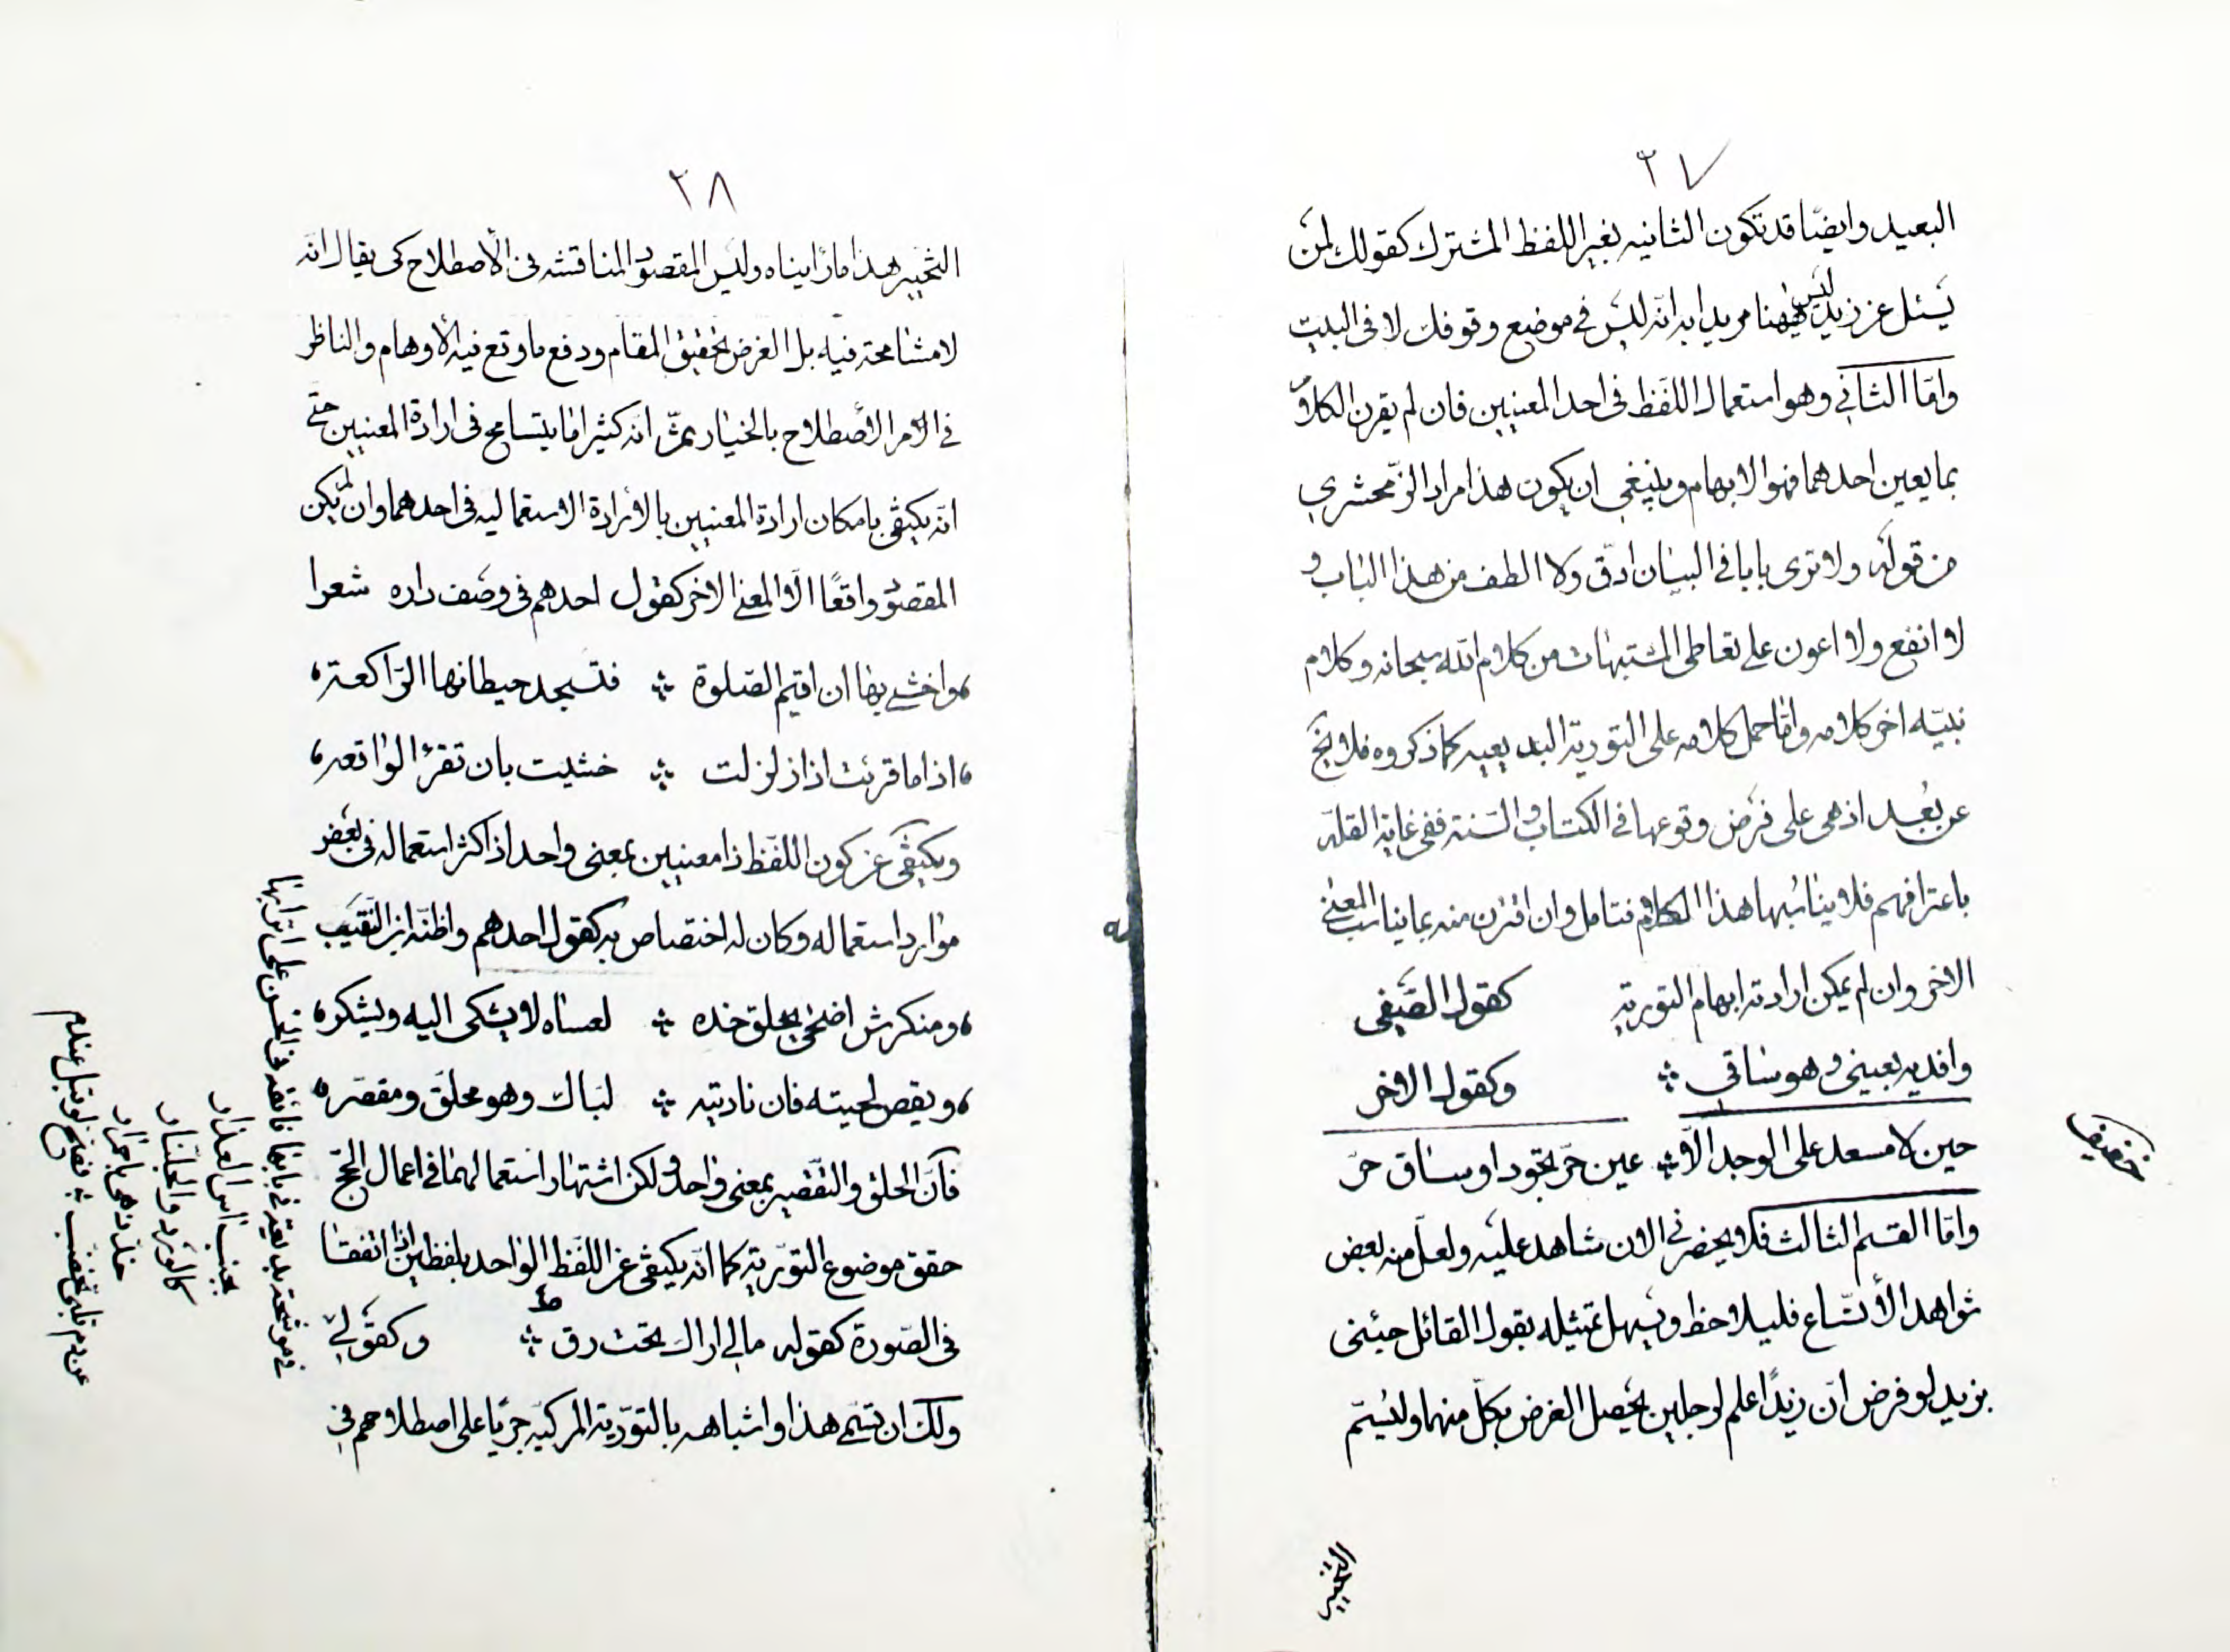 ٢٧
البعيد وايضًا قد تكون الثانيه بغير اللفظ المشترك كقولك لمن
يسئل عن زيد ليس هيهنا مريدا به انّه ليس في موضع وقوفك لا في البيت
وامّا الثاني وهو استعمال اللفظ في احد المعنيين فان لم يقرن الكلام
بما يعين احدهما فهو الابهام وينبغي ان يكون هذا مراد الزمخشري
من قوله ولا ترى بابا في البيان ادقّ ولا الطف من هذا الباب و
لا انفع ولا اعون على تعاطي المشتبهات من كلام الله سبحانه وكلام
نبيّه اخر كلامه وامّا حمل كلامه على التورية البديعيه كما ذكروه فلا يخ
عن بُعد اذ هي على فرض وقوعها في الكتاب والسّنة ففي غاية القلّه
باعترافهم فلا يناسبها هذا الكلام فتامل وان اقترن منه بما يناسب المعنى
الاخر وان لم يمكن ارادته ابهام التورية كقول الصّفي
وافديه بعيني وهو ساقي ؞ وكقول الاخر
حين لا مسعد على الوجد الّا ؞ عين حرّ تجود او ساق حرّ
خفيف
وامّا القسم الثالث فلا يحضرني الان شاهد عليه ولعلّ منه بعض
شواهد الأتّساع فليلاحظ ويسهل تمثيله بقول القائل جئني
بزيد لو فرض انّ زيدًا علم لرجلين يحصل الغرض بكلّ منهما وليُسمّ
التخيير
٢٨
التخيير هذا ما رأيناه وليس المقصود المناقشه في الأصطلاح كي يقال انّه
لا مشامحة فيه بل الغرض تحقيق المقام ودفع ما وقع فيه الأوهام والناظر
في الامر الأصطلاح بالخيار ثمّ انّه كثيرا ما يتسامح في ارادة المعنيين حتّى
انّه يكتفى بامكان ارادة المعنيين بالأرادة الاستعماليه في احدهما وان لم يكن
المقصود واقعًا الّا المعنى الاخر كقول احدهم في وصف داره شعرا
واخشى بها ان اقيم الصّلوة ؞ فتسجد حيطانها الرّاكعة
اذا ما قرئت اذا زلزلت ؞ خشيت بان تقرأ الواقعه
ويكتفى عن كون اللفظ ذا معنيين بمعنى واحد اذا كثر استعماله في بعض
موارد استعماله وكان له اختصاص به كقول احدهم واظنّه ابن النّقيب
ومنكرش اضحى يحلق خده ؞ لعساه لا يشكى اليه ويشكر
ويقص لحيته فان ناديته ؞ لبّاك وهو محلّق ومقصّر
فانّ الحلق والتقصير بمعنى واحد ولكن اشتهار استعمالهما في اعمال الحّج
حقق موضوع التّورية كما انّه يكتفى عن اللّفظ الواحد بلفظين اذا اتفقا
في الصّورة كقوله مالي اراك تحت رق ؞ وكقولي
ولك ان تسمّى هذا واشباهه بالتورية المركبّه جريًا على اصطلاحهم في
كالورد والجلّنار